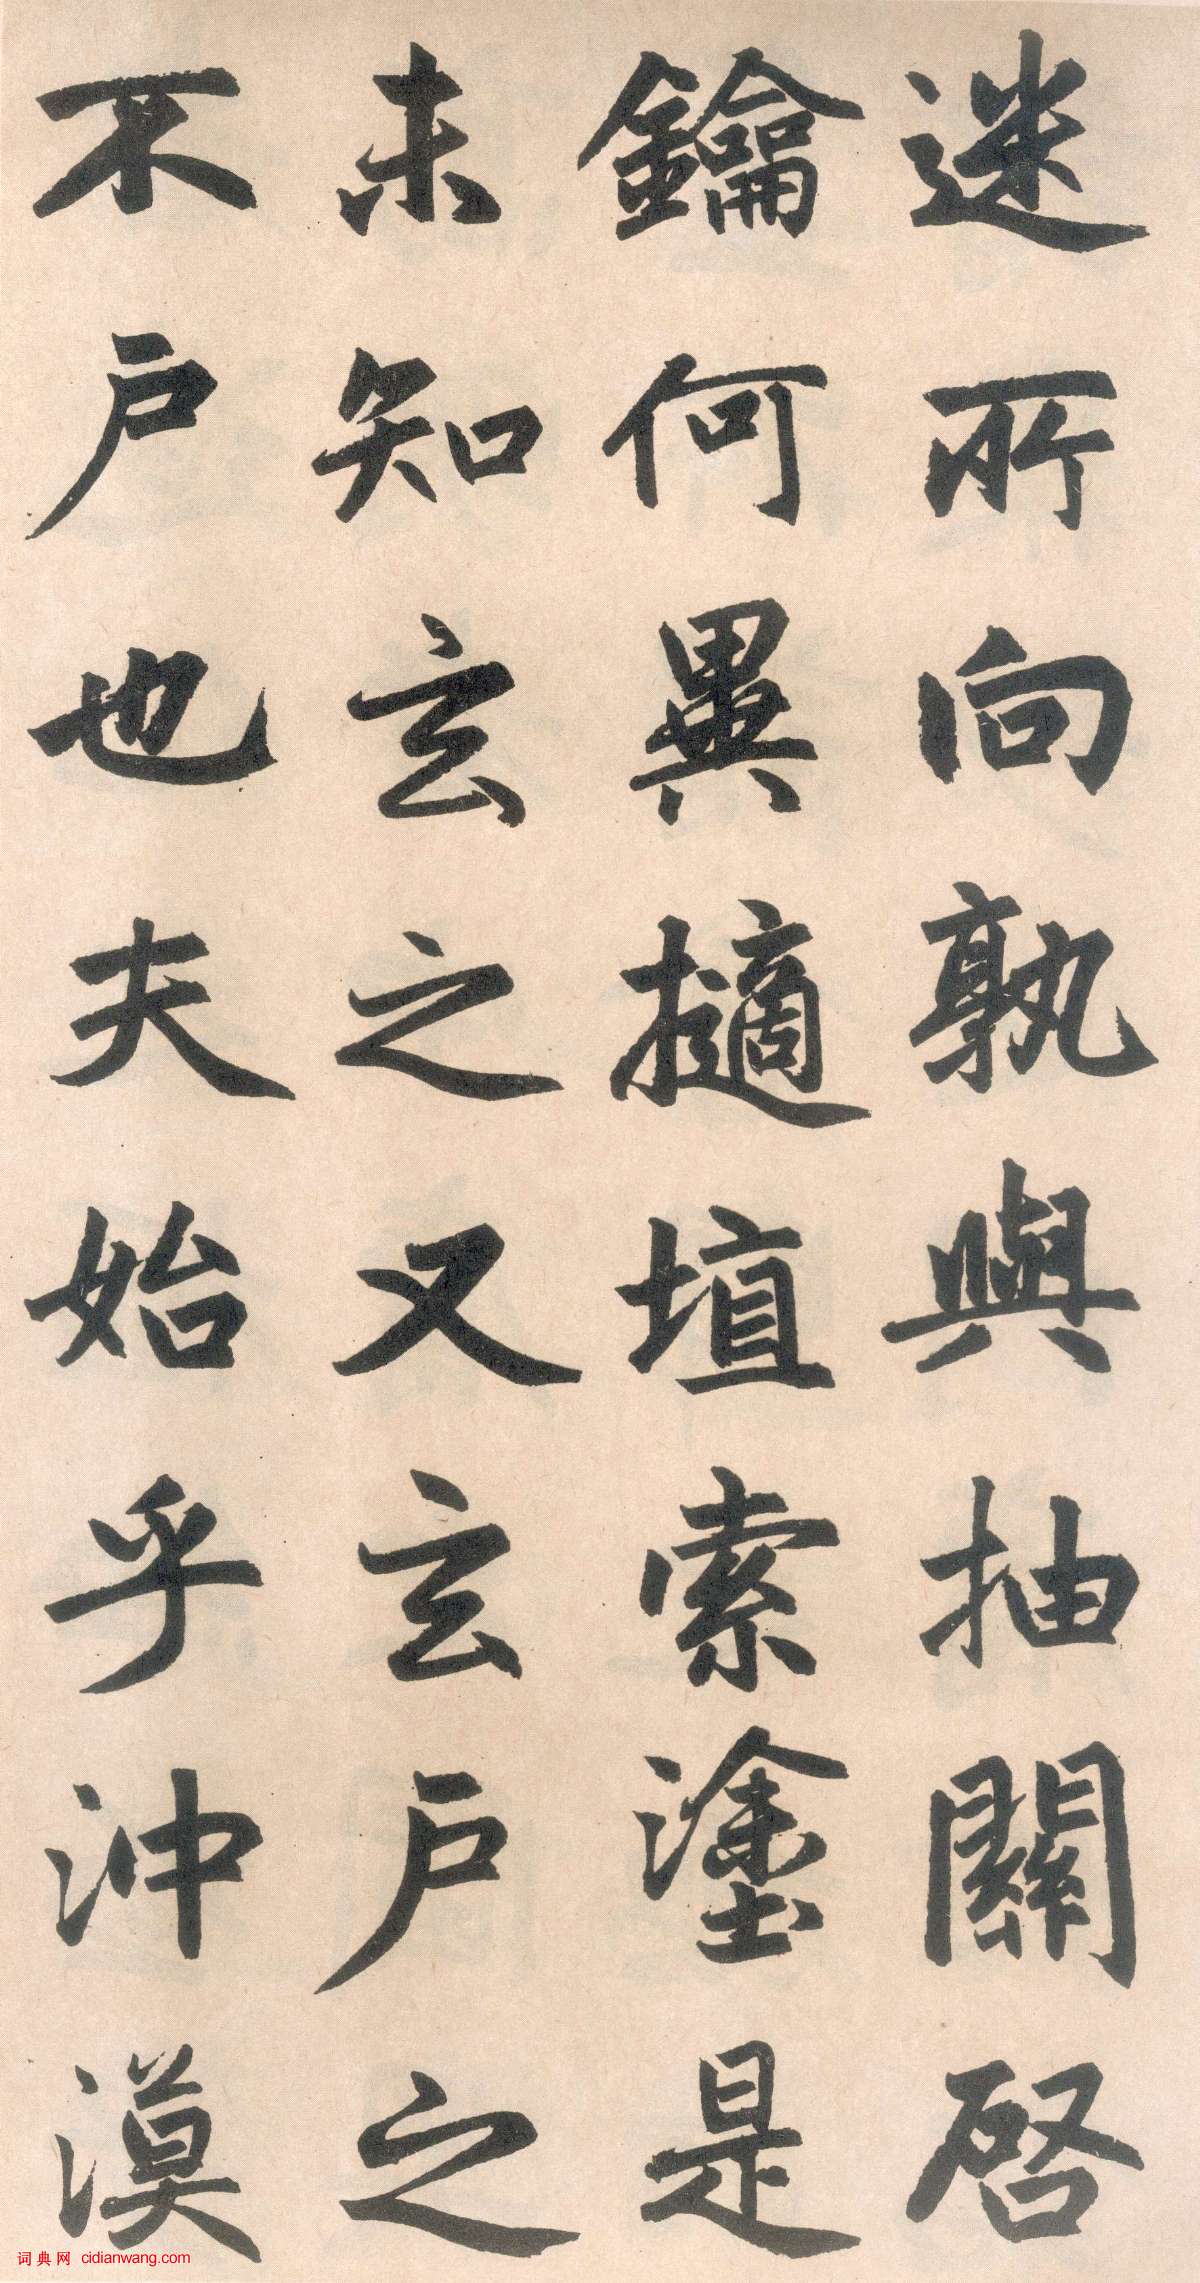 迷所向孰與抽關啓
鑰何異擿埴索塗是
未知玄之又玄户之
不户也夫始乎沖漠
词典网 cidianwang.com